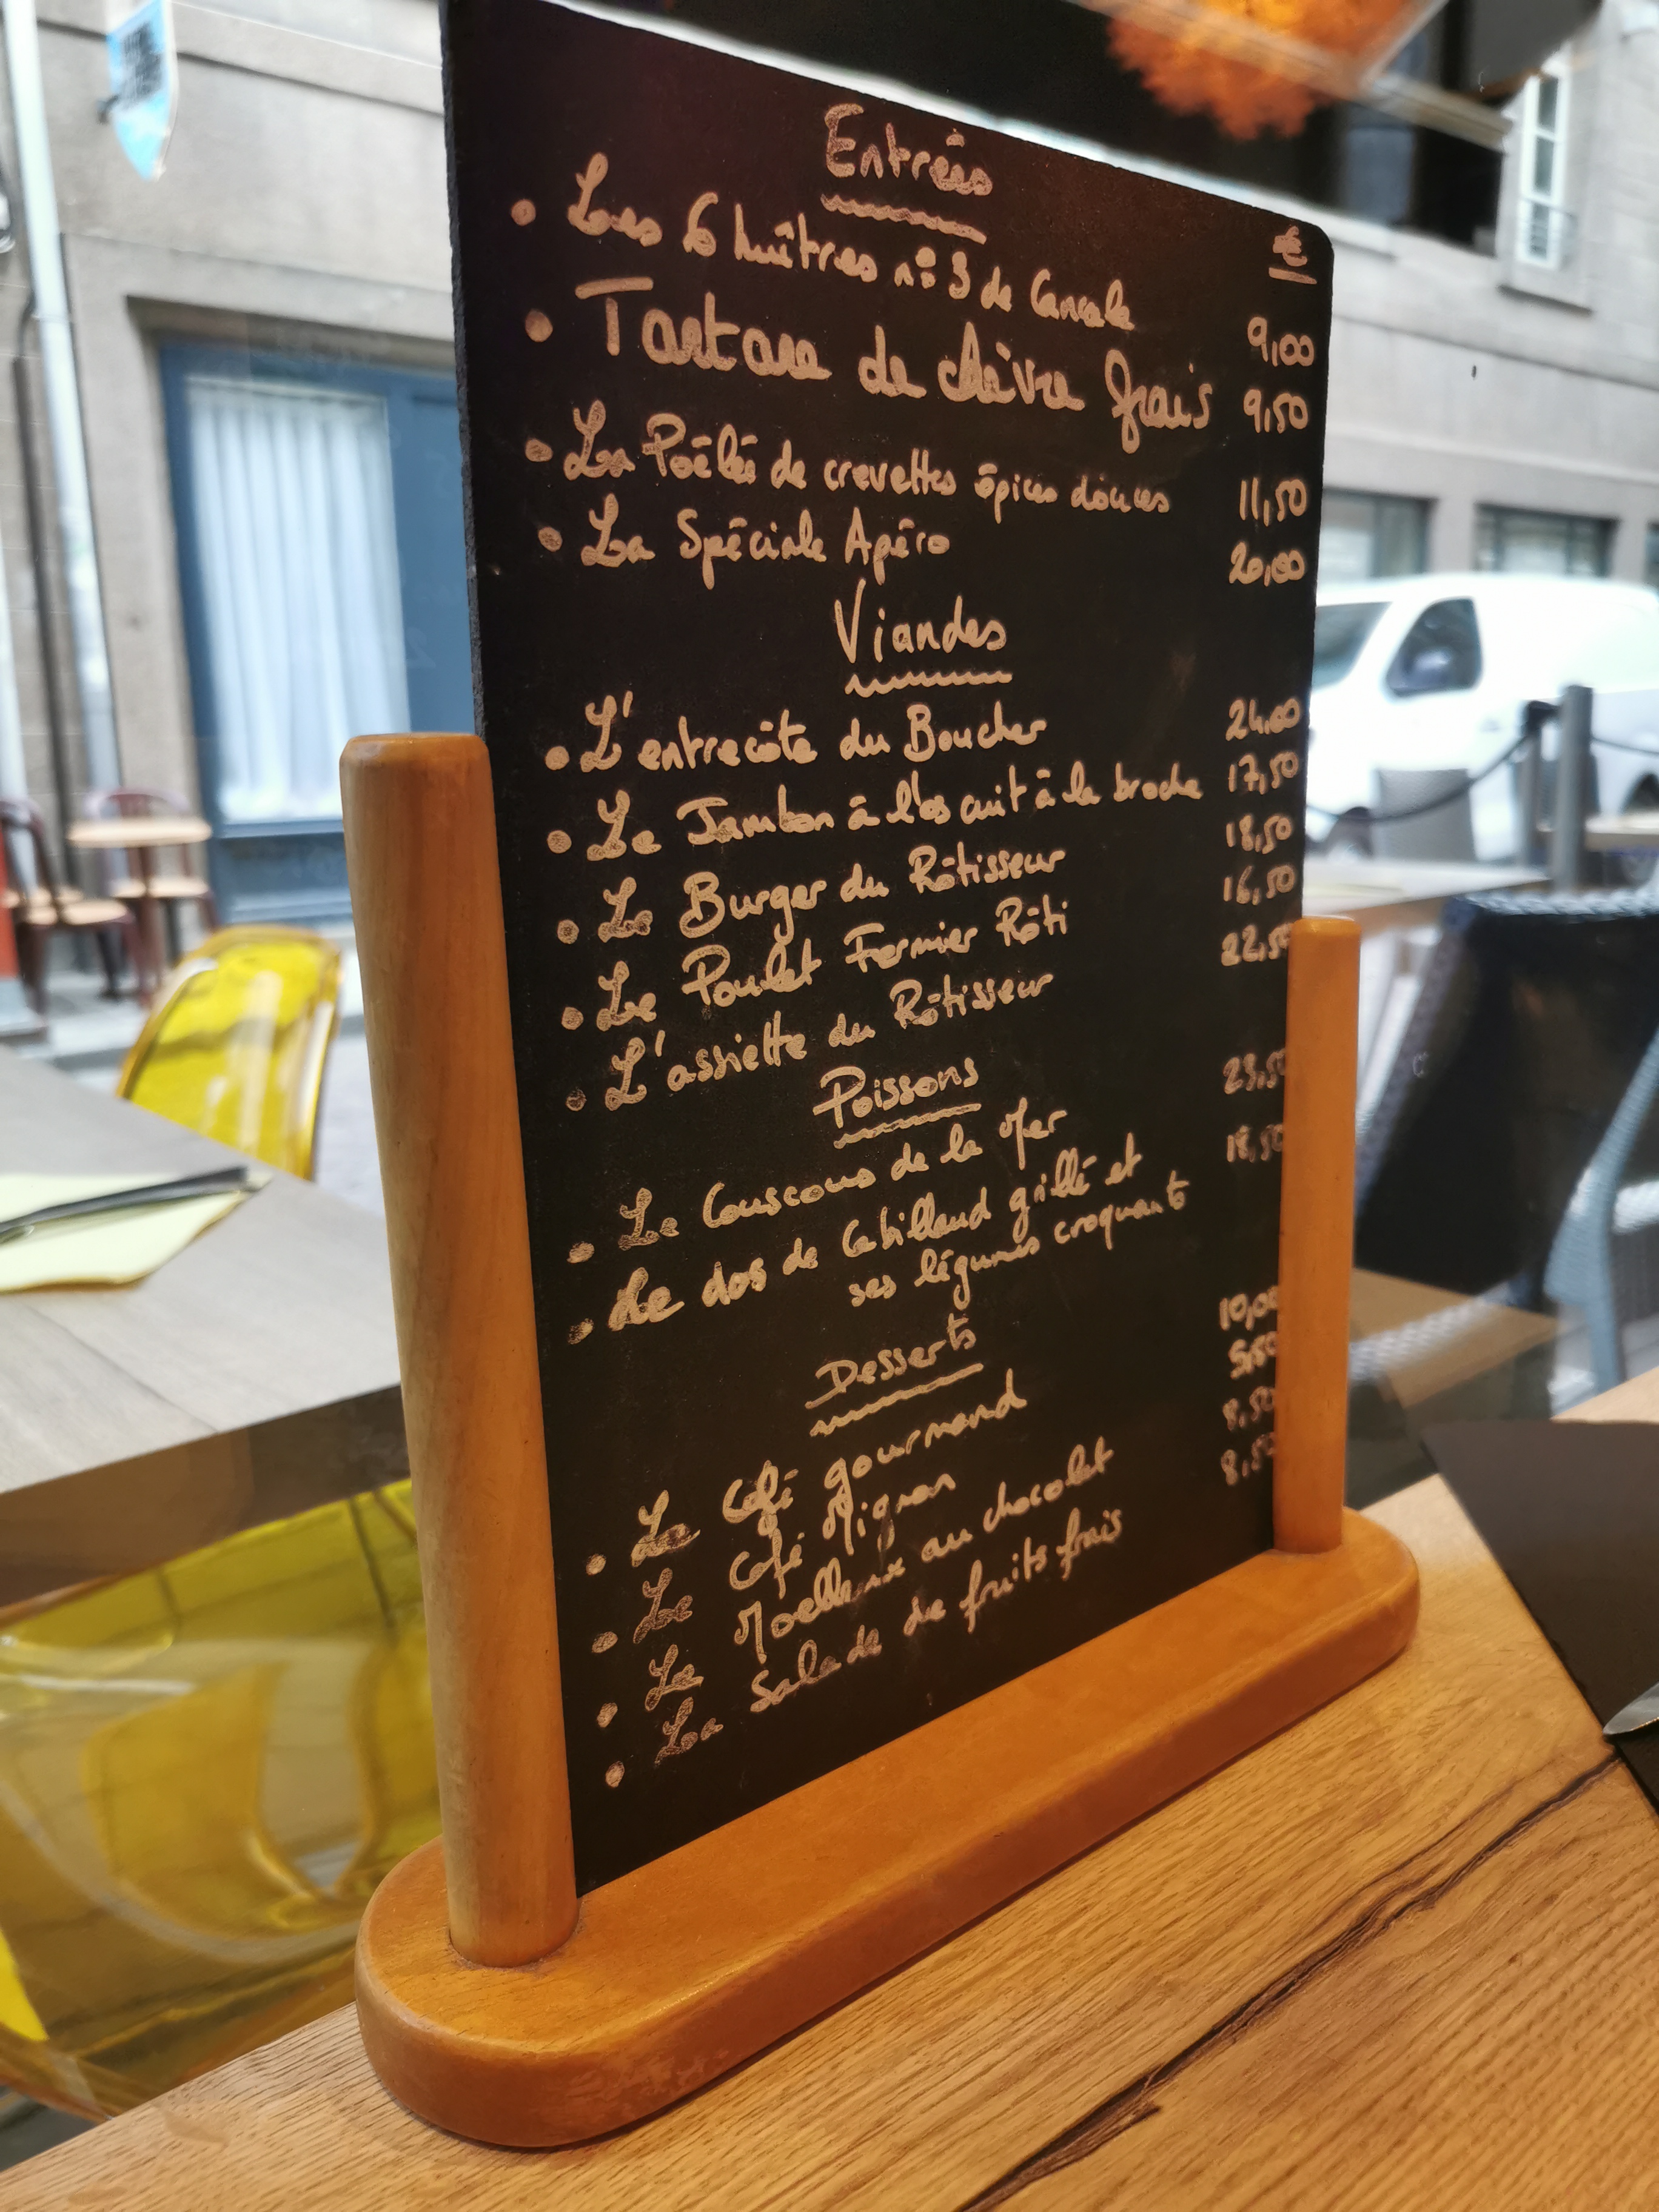 Entrées
€
• Les 6 huîtres n° 3 de Cancale 9,00
• Tartare de chèvre frais 9,50
• La Poêlée de crevettes épices douces 11,50
• La Spéciale Apéro 20,00
Viandes
• L'entrecôte du Boucher 24,00
• Le Jambon à l'os cuit à la broche 17,50
• Le Burger du Rôtisseur 18,50
• Le Poulet Fermier Rôti 16,50
• L'assiette du Rôtisseur 22,50
Poissons
• Le Couscous de la Mer 23,50
• Le dos de Cabillaud grillé et 18,50
ses légumes croquants
Desserts
• Le Café gourmand 10,00
• Le Café Mignon 5,50
• Le Moelleux au chocolat 8,50
• La Salade de fruits frais 8,50